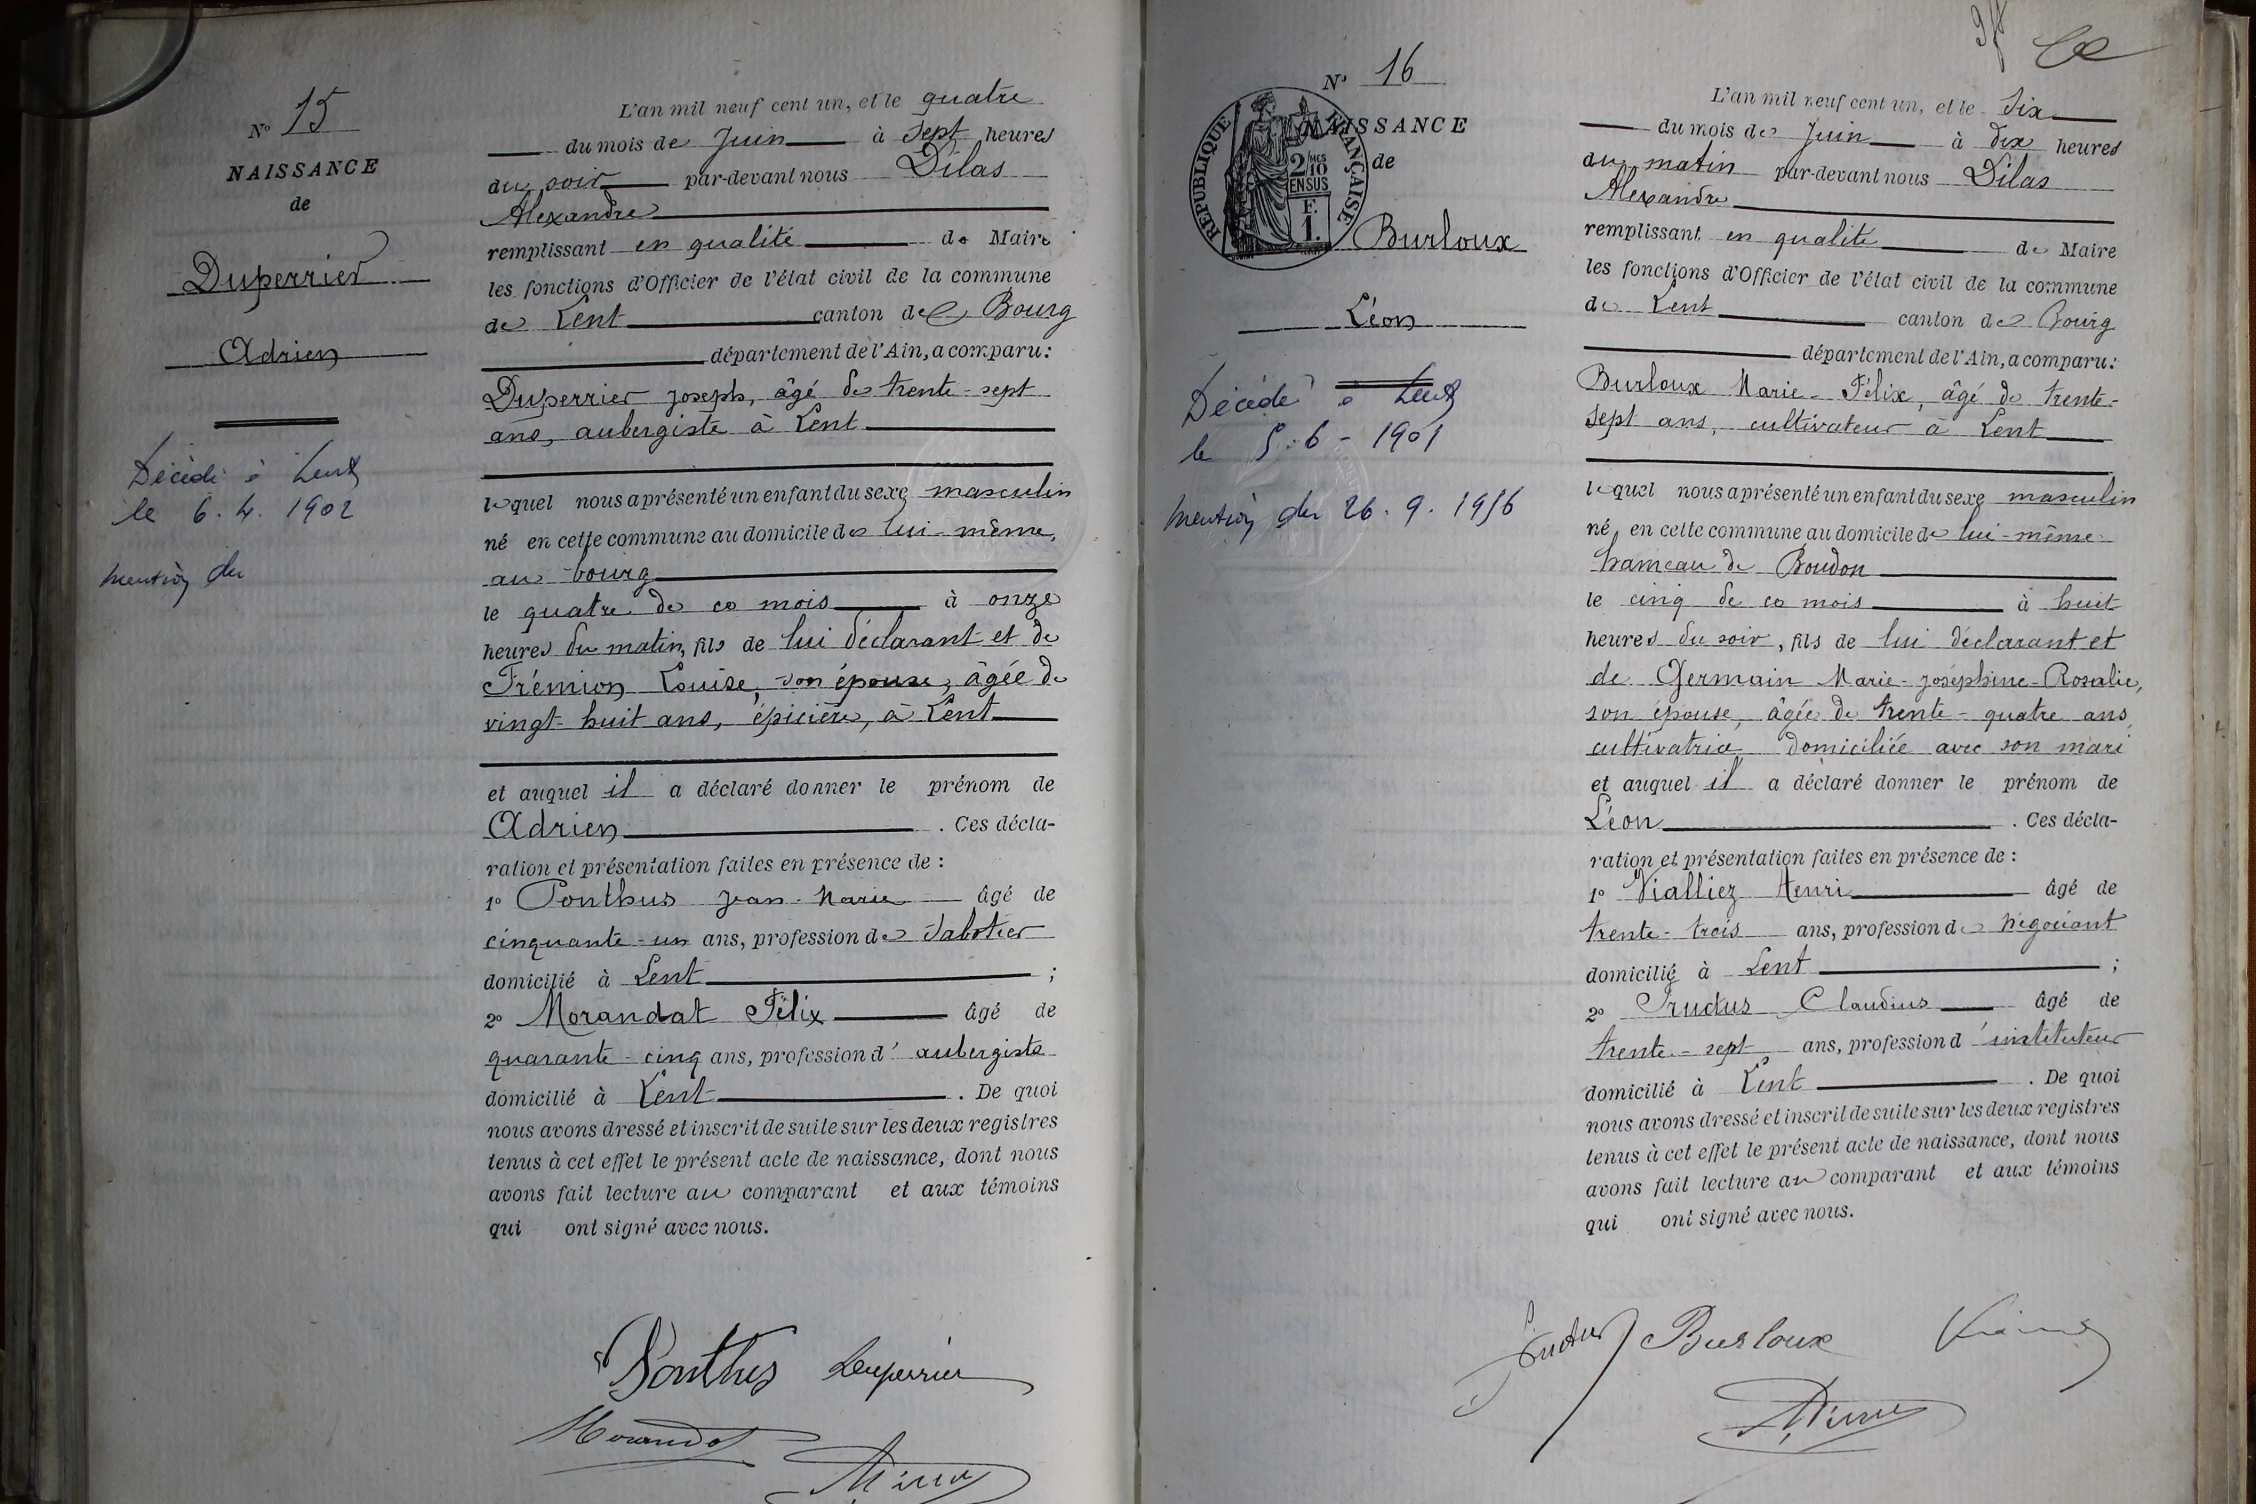 N° 15
NAISSANCE
de
Duperrier
Adrien
Décédé à Lent
le 6.4.1902
mention du
L'an mil neuf cent un, et le quatre
du mois de Juin à sept heures
du soir par-devant nous Dilas
Alexandre
remplissant en qualité de Maire
les fonctions d'Officier de l'état civil de la commune
de Lent canton de Bourg
département de l'Ain, a comparu:
Duperrier Joseph, âgé de trente-sept
ans, aubergiste à Lent
lequel nous a présenté un enfant du sexe masculin
né en cette commune au domicile de lui-même,
au bourg
le quatre de ce mois à onze
heures du matin, fils de lui déclarant et de
Frémion Louise, son épouse, âgée de
vingt-huit ans, épicière, à Lent
et auquel il a déclaré donner le prénom de
Adrien. Ces décla-
ration et présentation faites en présence de :
1° Ponthus Jean-Marie âgé de
cinquante-un ans, profession de sabotier
domicilié à Lent ;
2° Morandat Félix âgé de
quarante-cinq ans, profession d'aubergiste
domicilié à Lent. De quoi
nous avons dressé et inscrit de suite sur les deux registres
tenus à cet effet le présent acte de naissance, dont nous
avons fait lecture au comparant et aux témoins
qui ont signé avec nous.
Ponthus Duperrier
Morandat
N° 16
NAISSANCE
de
RÉPUBLIQUE FRANÇAISE
2/10
EN SUS
F.
1.
Burloux
Léon
Décédé à Lent
le 5-6-1901
mention du 26.9.1956
L'an mil neuf cent un, et le six
du mois de Juin à dix heures
du matin par-devant nous Dilas
Alexandre
remplissant en qualité de Maire
les fonctions d'Officier de l'état civil de la commune
de Lent canton de Bourg
département de l'Ain, a comparu:
Burloux Marie-Félix, âgé de trente-
sept ans, cultivateur à Lent
lequel nous a présenté un enfant du sexe masculin
né en cette commune au domicile de lui-même
hameau de Boudon
le cinq de ce mois à huit
heures du soir, fils de lui déclarant et
de Germain Marie-Joséphine-Rosalie,
son épouse, âgée de trente-quatre ans,
cultivatrice domiciliée avec son mari
et auquel il a déclaré donner le prénom de
Léon. Ces décla-
ration et présentation faites en présence de :
1° Vialliez Henri âgé de
trente-trois ans, profession de négociant
domicilié à Lent ;
2° Fructus Claudius âgé de
trente-sept ans, profession d'instituteur
domicilié à Lent. De quoi
nous avons dressé et inscrit de suite sur les deux registres
tenus à cet effet le présent acte de naissance, dont nous
avons fait lecture au comparant et aux témoins
qui ont signé avec nous.
Fructus Burloux